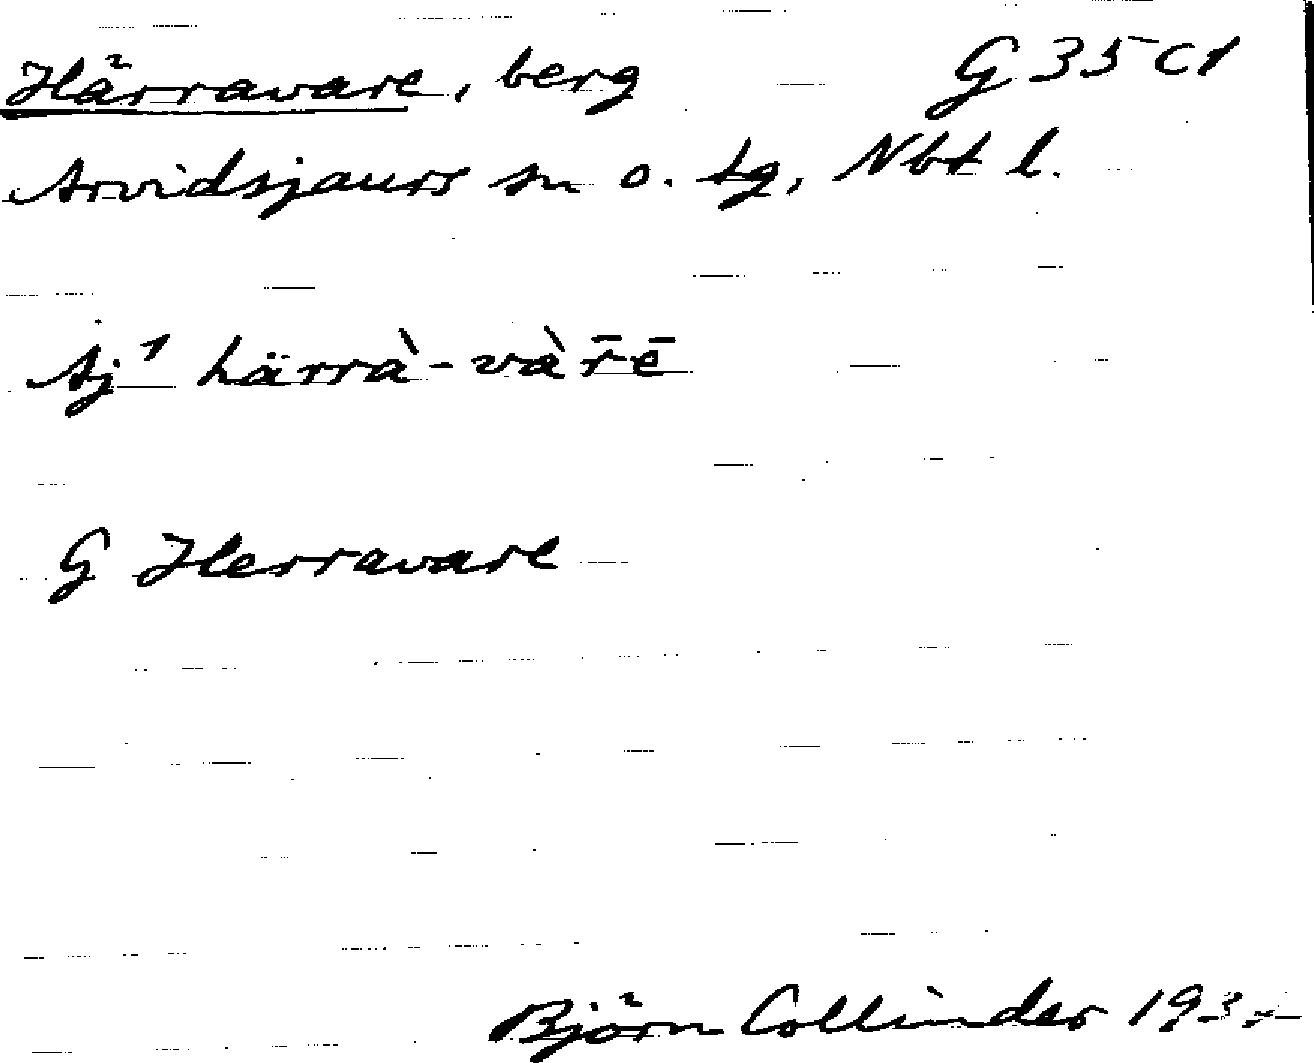 Härravare, berg G 35 c1
Arvidsjaurs sn o. tg, Nbt l.
Aj¹ härrà-vàr̄ē
G Herravare
Björn Collinder